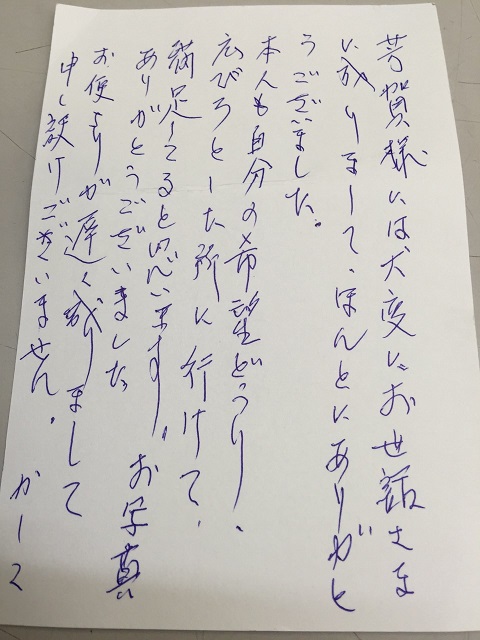 芳賀様には大変にお世話さま
に成りまして、ほんとにありがと
うございました。
本人も自分の希望どうり、
広びろとした所に行けて、
満足してると思います。お写真
ありがとうございました
お便りが遅く成りまして
申し訳けございません。
かしこ